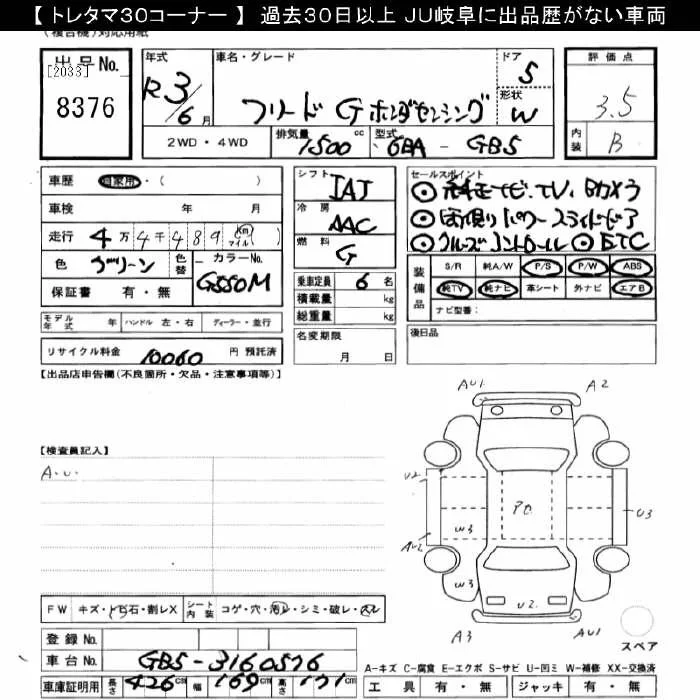 【 トレタマ30コーナー 】 過去30日以上 JU岐阜に出品歴がない車両
(複合機)対応用紙
出品No.
[2033]
8376
年式
R3/6月
車名・グレード
フリード G ホンダセンシング
ドア
5
形状
W
評価点
3.5
内装
B
2WD・4WD
排気量
1500 cc
型式
6BA - GB5
車歴 自家用・( )
車検 年 月
走行 4万4千489 km マイル ( )
色 グリーン
色替
カラーNo.
G550M
保証書 有・無
シフト
IAT
冷房
AAC
燃料
G
乗車定員 6 名
積載量 kg
総重量 kg
セールスポイント
◎ 純正ナビ、TV、Bカメラ
◎ 両側パワースライドドア
◎ クルーズコントロール ◎ ETC
装備品
S/R 純A/W P/S P/W ABS
純TV 純ナビ 革シート 外ナビ エアB
ナビ型番:
モデル年式 年 ハンドル 左・右 ディーラー・並行
名変期限
月 日
後日品
リサイクル料金 10060 円 預託済
【出品店申告欄(不良箇所・欠品・注意事項等)】
【検査員記入】
A.U.
AU1
A2
U2
PO
U3
W3
AU2
W3
U2
A3
AU1
スペア
FW キズ・トビ石・割レX
シート内装
コゲ・穴・汚レ・シミ・破レ・スレ
登録No.
車台No. GB5-3160576
車庫証明用 長さ 426cm 幅 169cm 高さ 171cm
A-キズ C-腐食 E-エクボ S-サビ U-凹ミ W-補修 XX-交換済
工具 有・無 ジャッキ 有・無